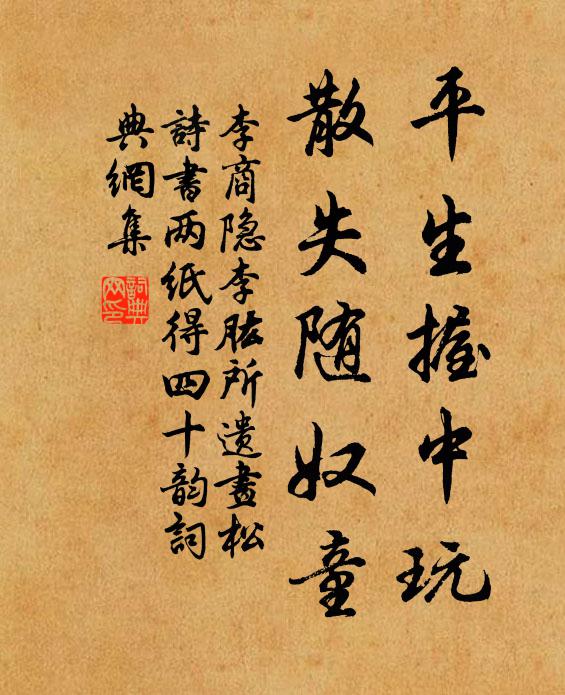 平生握中玩
散失随奴童
李商隐李肱所遺畫松
詩書两紙得四十韵詞
典網集
詞典
网印